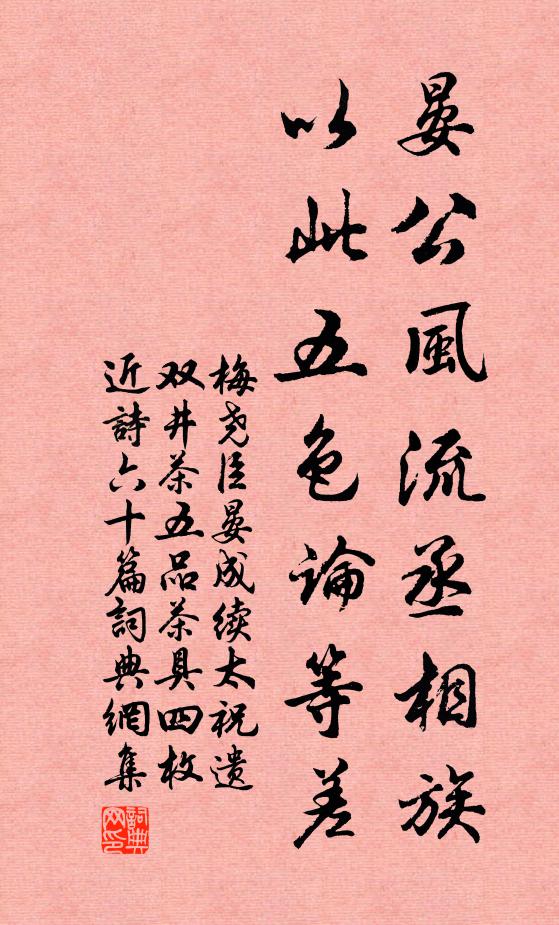 晏公風流丞相族
以此五色論等差
梅尧臣晏成续太祝遗
双井茶五品茶具四枚
近詩六十篇詞典網集
詞典
网印